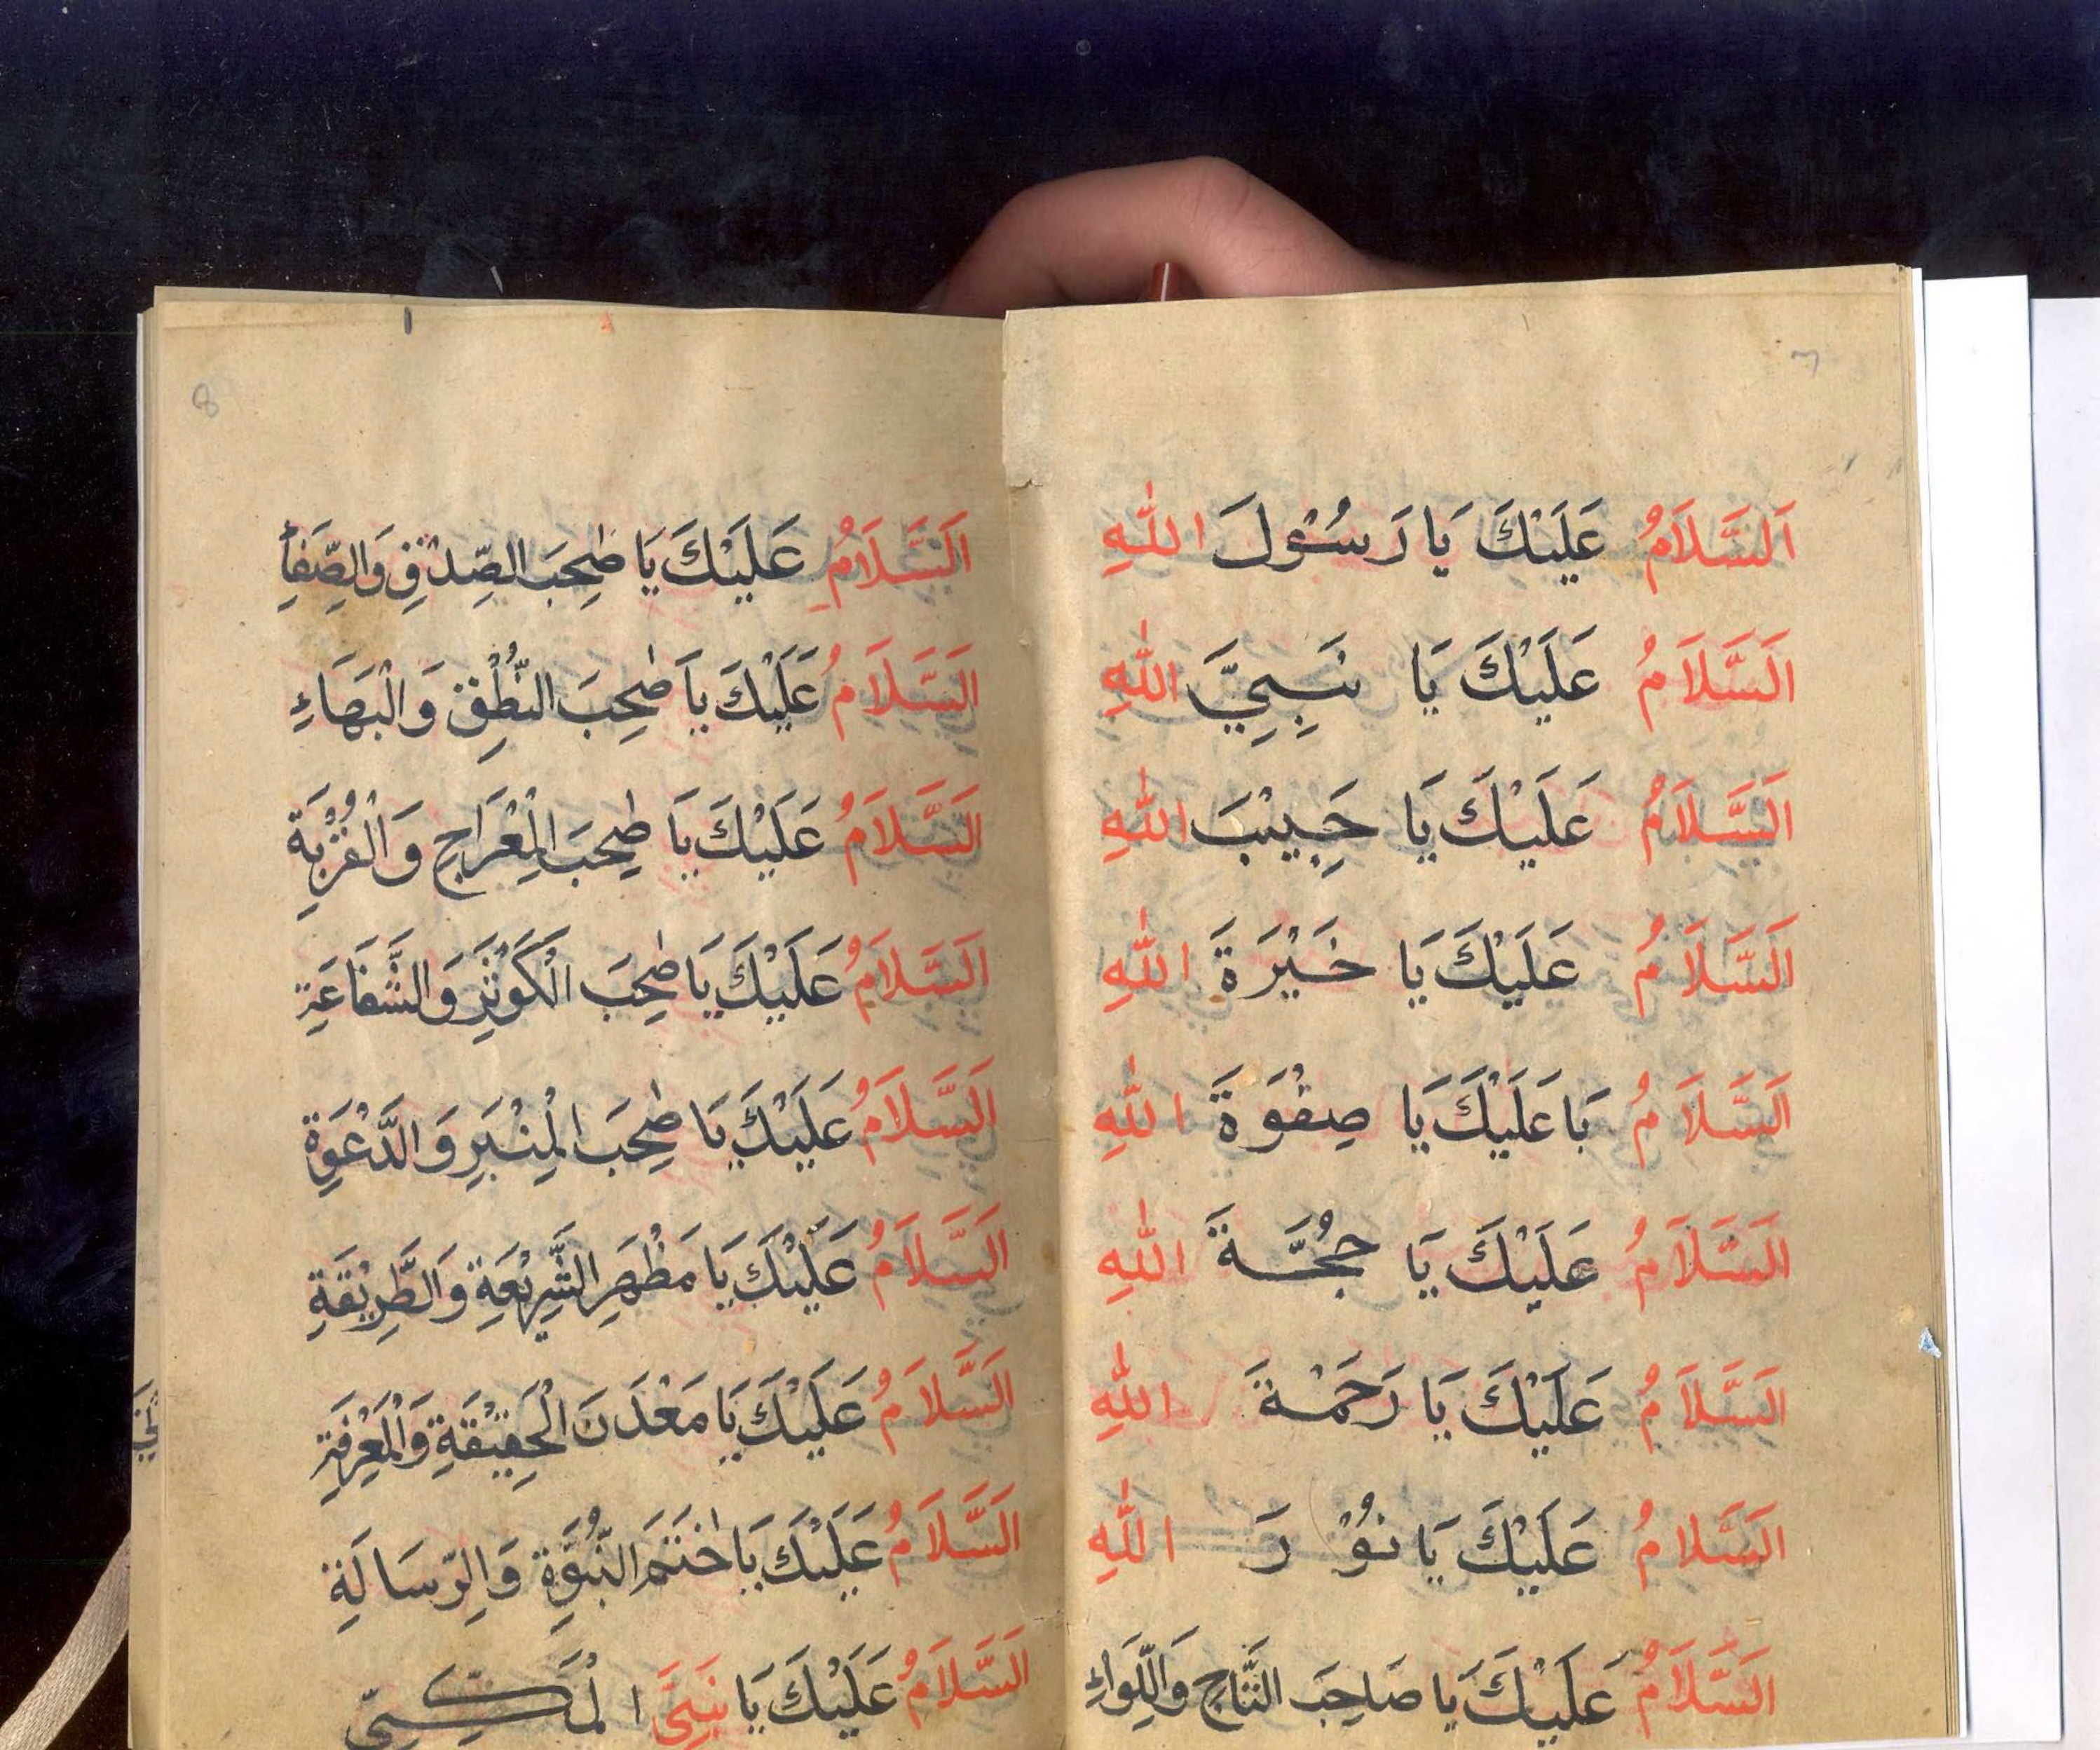 7
اَلسَّلَامُ عَلَيْكَ يَا رَسُوْلَ اللّٰهِ
اَلسَّلَامُ عَلَيْكَ يَا نَبِيَّ اللّٰهِ
اَلسَّلَامُ عَلَيْكَ يَا حَبِيْبَ اللّٰهِ
اَلسَّلَامُ عَلَيْكَ يَا خَيْرَةَ اللّٰهِ
اَلسَّلَامُ بَاعَلَيْكَ يَا صِفْوَةَ اللّٰهِ
اَلسَّلَامُ عَلَيْكَ يَا حُجَّةَ اللّٰهِ
اَلسَّلَامُ عَلَيْكَ يَا رَحْمَةَ اللّٰهِ
اَلسَّلَامُ عَلَيْكَ يَا نُوْرَ اللّٰهِ
اَلسَّلَامُ عَلَيْكَ يَا صَاحِبَ التَّاجِ وَاللِّوَاءِ
8
اَلسَّلَامُ عَلَيْكَ يَا صٰحِبَ الصِّدْقِ وَالصِّفَاءِ
اَلسَّلَامُ عَلَيْكَ يَا صٰحِبَ النُّطْقِ وَالْبَهَاءِ
اَلسَّلَامُ عَلَيْكَ يَا صٰحِبَ الْمِعْرَاجِ وَالْقُرْبَةِ
اَلسَّلَامُ عَلَيْكَ يَا صٰحِبَ الْكَوْثَرِ وَالشَّفَاعَةِ
اَلسَّلَامُ عَلَيْكَ يَا صٰحِبَ الْمِنْبَرِ وَالدَّعْوَةِ
اَلسَّلَامُ عَلَيْكَ يَا مَظْهَرِ الشَّرِيْعَةِ وَالطَّرِيْقَةِ
اَلسَّلَامُ عَلَيْكَ يَا مَعْدَنَ الْحَقِيْقَةِ وَالْمَعْرِفَةِ
اَلسَّلَامُ عَلَيْكَ يَا خٰتَمَ النُّبُوَّةِ وَالرِّسَالَةِ
اَلسَّلَامُ عَلَيْكَ يَا نَبِيَّ الْمَكِّيِّ